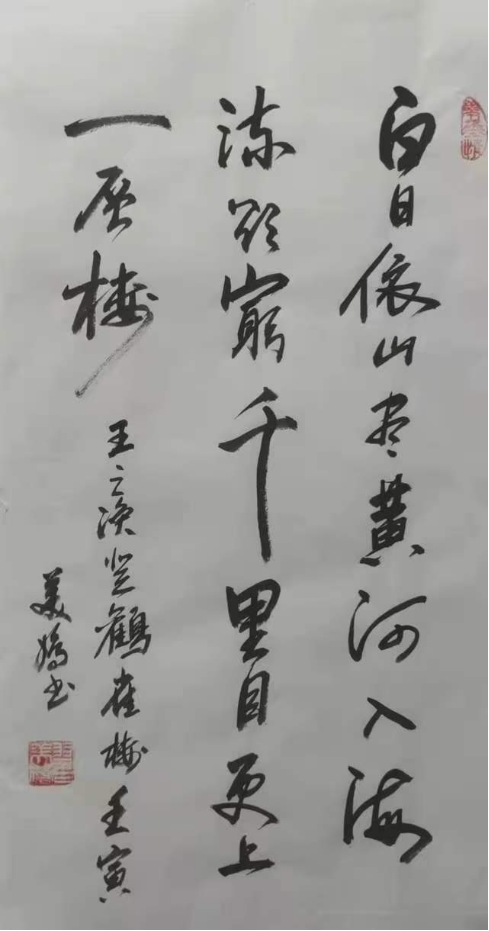 白日依山尽黄河入海
流欲穷千里目更上
一层楼
王之涣登鹳雀楼壬寅
美娇书